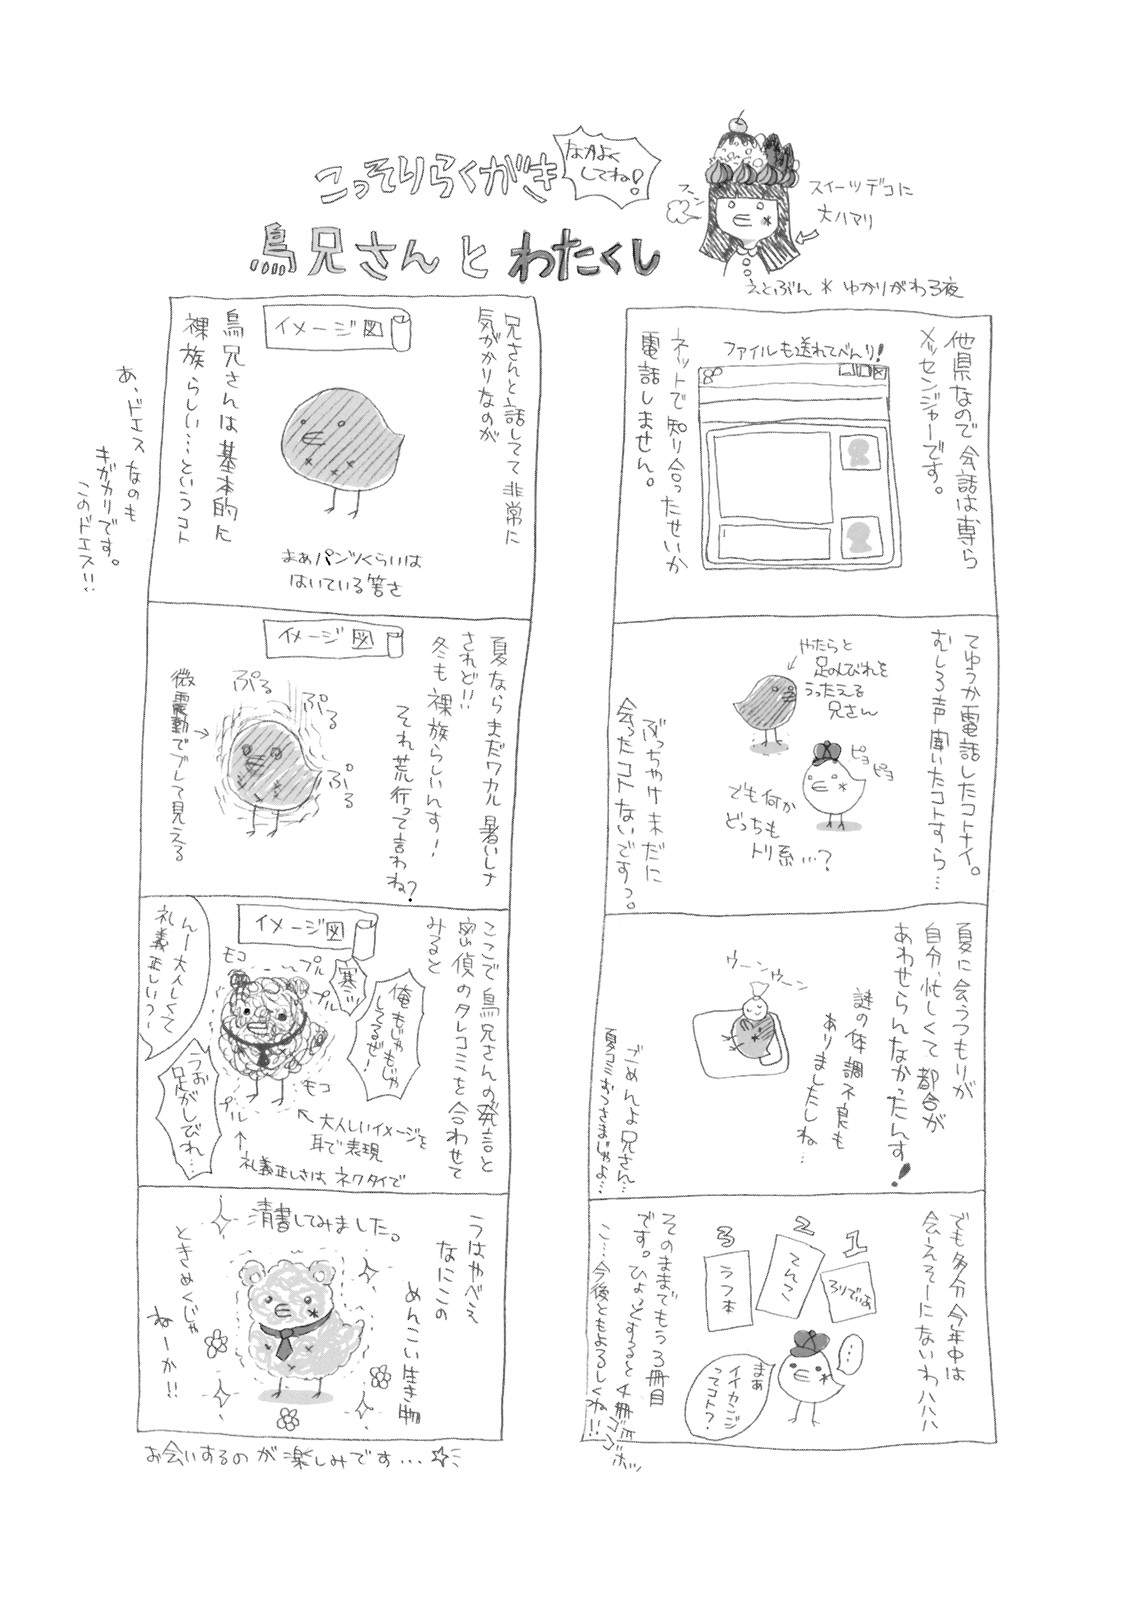 こっそりらくがき
なかよく
してね!
鳥兄さんとわたくし
フーン
スイーツデコに
大ハマリ
えとぶん*ゆかりがわる夜
他県なので会話は専ら
メッセンジャーです。
ファイルも送れてべんり!
ネットで知り合ったせいか
電話しません。
てゆうか電話したコトナイ。
むしろ声聞いたコトすら…
やたらと
足のしびれを
うったえる
兄さん
ピヨ
ピヨ
でも何か
どっちも
トリ系…?
ぶっちゃけ未だに
会ったコトないですっ。
夏に会うつもりが
自分、忙しくて都合が
あわせらんなかったんす!
謎の体調不良も
ありましたしね…
ウーンウーン
ごめんよ兄さん…
夏コミおつさまじゃよ…
でも多分今年中は
会ーえそーにないわハハハ
1
ろりでぃあ
2
てんつく
3
うフ本
…
まぁ
イイカンジ
ってコト?
そのままでもう3冊目
です。ひょっとすると4冊ゴゴホッ
こ…今後ともよろしくね!!
兄さんと話してて非常に
気がかりなのが
イメージ図
鳥兄さんは基本的に
裸族らしい…というコト
まぁパンツくらいは
はいている筈さ
あ、ドエスなのも
キガカリです。
このドエス!!
夏ならまだワカル暑いしさ
されど!!
冬も裸族らしいんす!
それ荒行って言わね?
イメージ図
ぷる
ぷる
ぷる
微震動でブレて見える
ここで鳥兄さんの発言と
密偵のタレコミを合わせて
みると
イメージ図
モコ
プル
プル
寒ッ
俺もじゃもじゃ
してるぜ!
んー大人しくて
礼義正しい?
うお
足がしびれ…
モコ
プル
大人しいイメージを
耳で表現
礼義正しさは、ネクタイで
うはやべぇ
なにこの
めんこい生き物
清書してみました。
ときめくじゃ
ねーか!!
お会いするのが楽しみです…☆